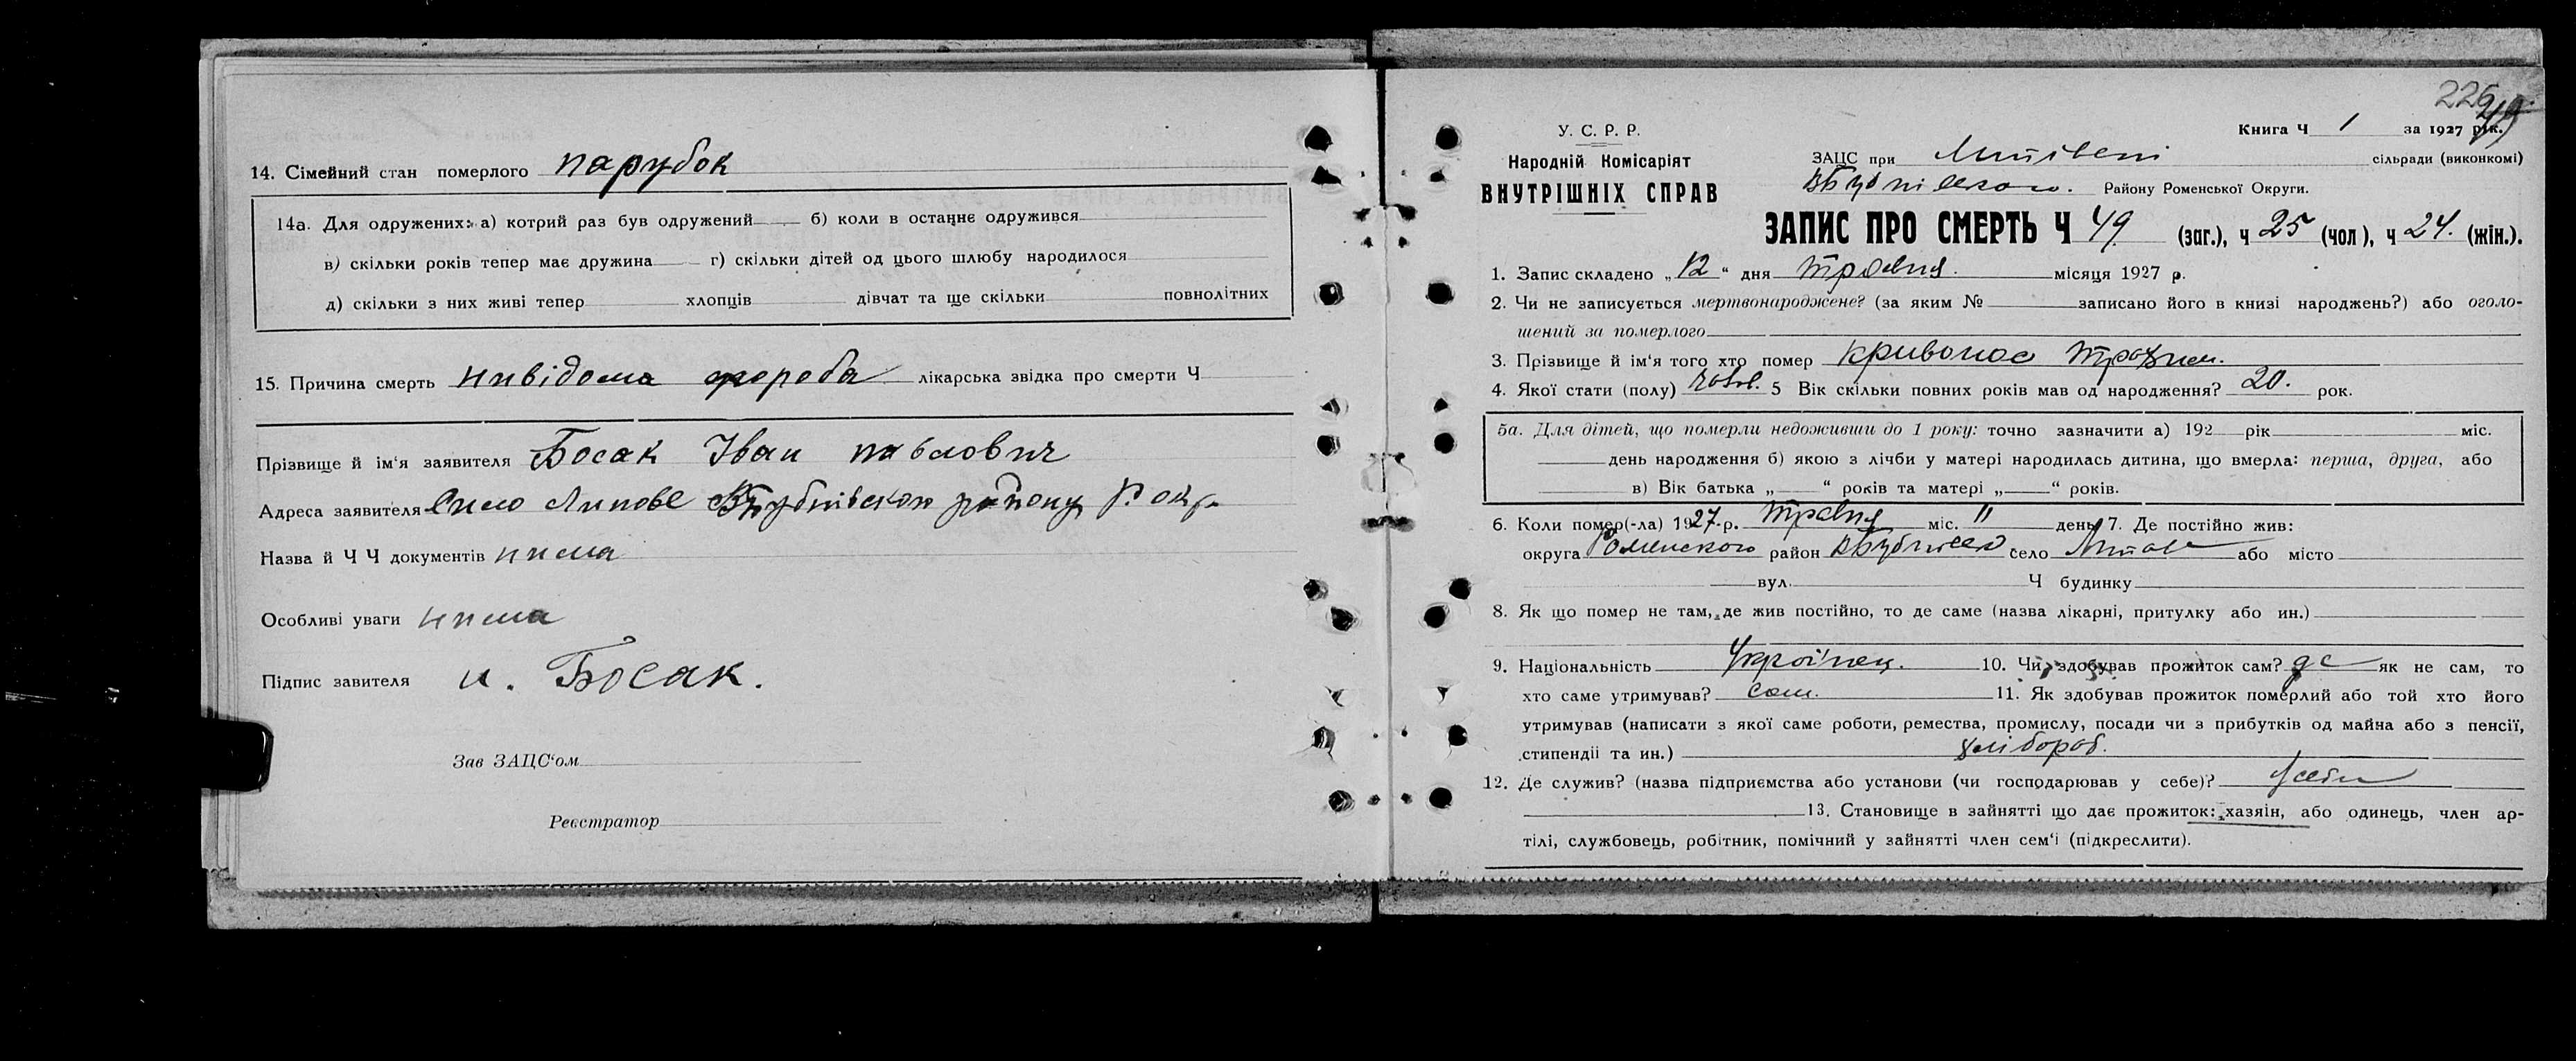 14. Сімейний стан померлого парубок
14а. Для одружених: а) котрий раз був одружений б) коли в останнє одружився
в) скільки років тепер має дружина г) скільки дітей од цього шлюбу народилося
д) скільки з них живі тепер хлопців дівчат та ще скільки повнолітних
15. Причина смерть нивідома фороба лікарська звідка про смерти Ч
Прізвище й ім'я заявителя Босак Іван павлович
Адреса заявителя Село Липове району Р. окр.
Назва й Ч Ч документів нима
Особливі уваги нима
Підпис завителя и. Босак.
Зав ЗАЦС'ом
Реєстратор
226
Книга Ч 1 за 1927 рік.
У. С. Р. Р.
Народній Комісаріят
ВНУТРІШНІХ СПРАВ
ЗАЦС при сільради (виконкомі)
Району Роменської Округи.
ЗАПИС ПРО СМЕРТЬ Ч 49 (заг.), ч 25 (чол), ч 24. (жін.).
1. Запис складено „12“ дня травня. місяця 1927 р.
2. Чи не записується мертвонароджене? (за яким № записано його в книзі народжень?) або оголо-
шений за померлого
3. Прізвище й ім'я того хто помер Кривонос
4. Якої стати (полу) 5 Вік скільки повних років мав од народження? 20. рок.
5а. Для дітей, що померли недоживши до 1 року: точно зазначити а) 192 рік міс.
день народження б) якою з лічби у матері народилась дитина, що вмерла: перша, друга, або
в) Вік батька „ “ років та матері „ “ років.
6. Коли помер(-ла) 1927 р. травня міс. 11 день 7. Де постійно жив:
округа Роменского район село або місто
вул. Ч будинку
8. Як що помер не там, де жив постійно, то де саме (назва лікарні, притулку або ин.)
9. Національність Україпец. 10. Чи здобував прожиток сам? як не сам, то
хто саме утримував? сам. 11. Як здобував прожиток померлий або той хто його
утримував (написати з якої саме роботи, ремества, промислу, посади чи з прибутків од майна або з пенсії,
стипендії та ин.) хлібороб.
12. Де служив? (назва підприємства або установи (чи господарював у себе)? Усебе
13. Становище в зайнятті що дає прожиток: хазяїн, або одинець, член ар-
тілі, службовець, робітник, помічний у зайнятті член сем'ї (підкреслити).